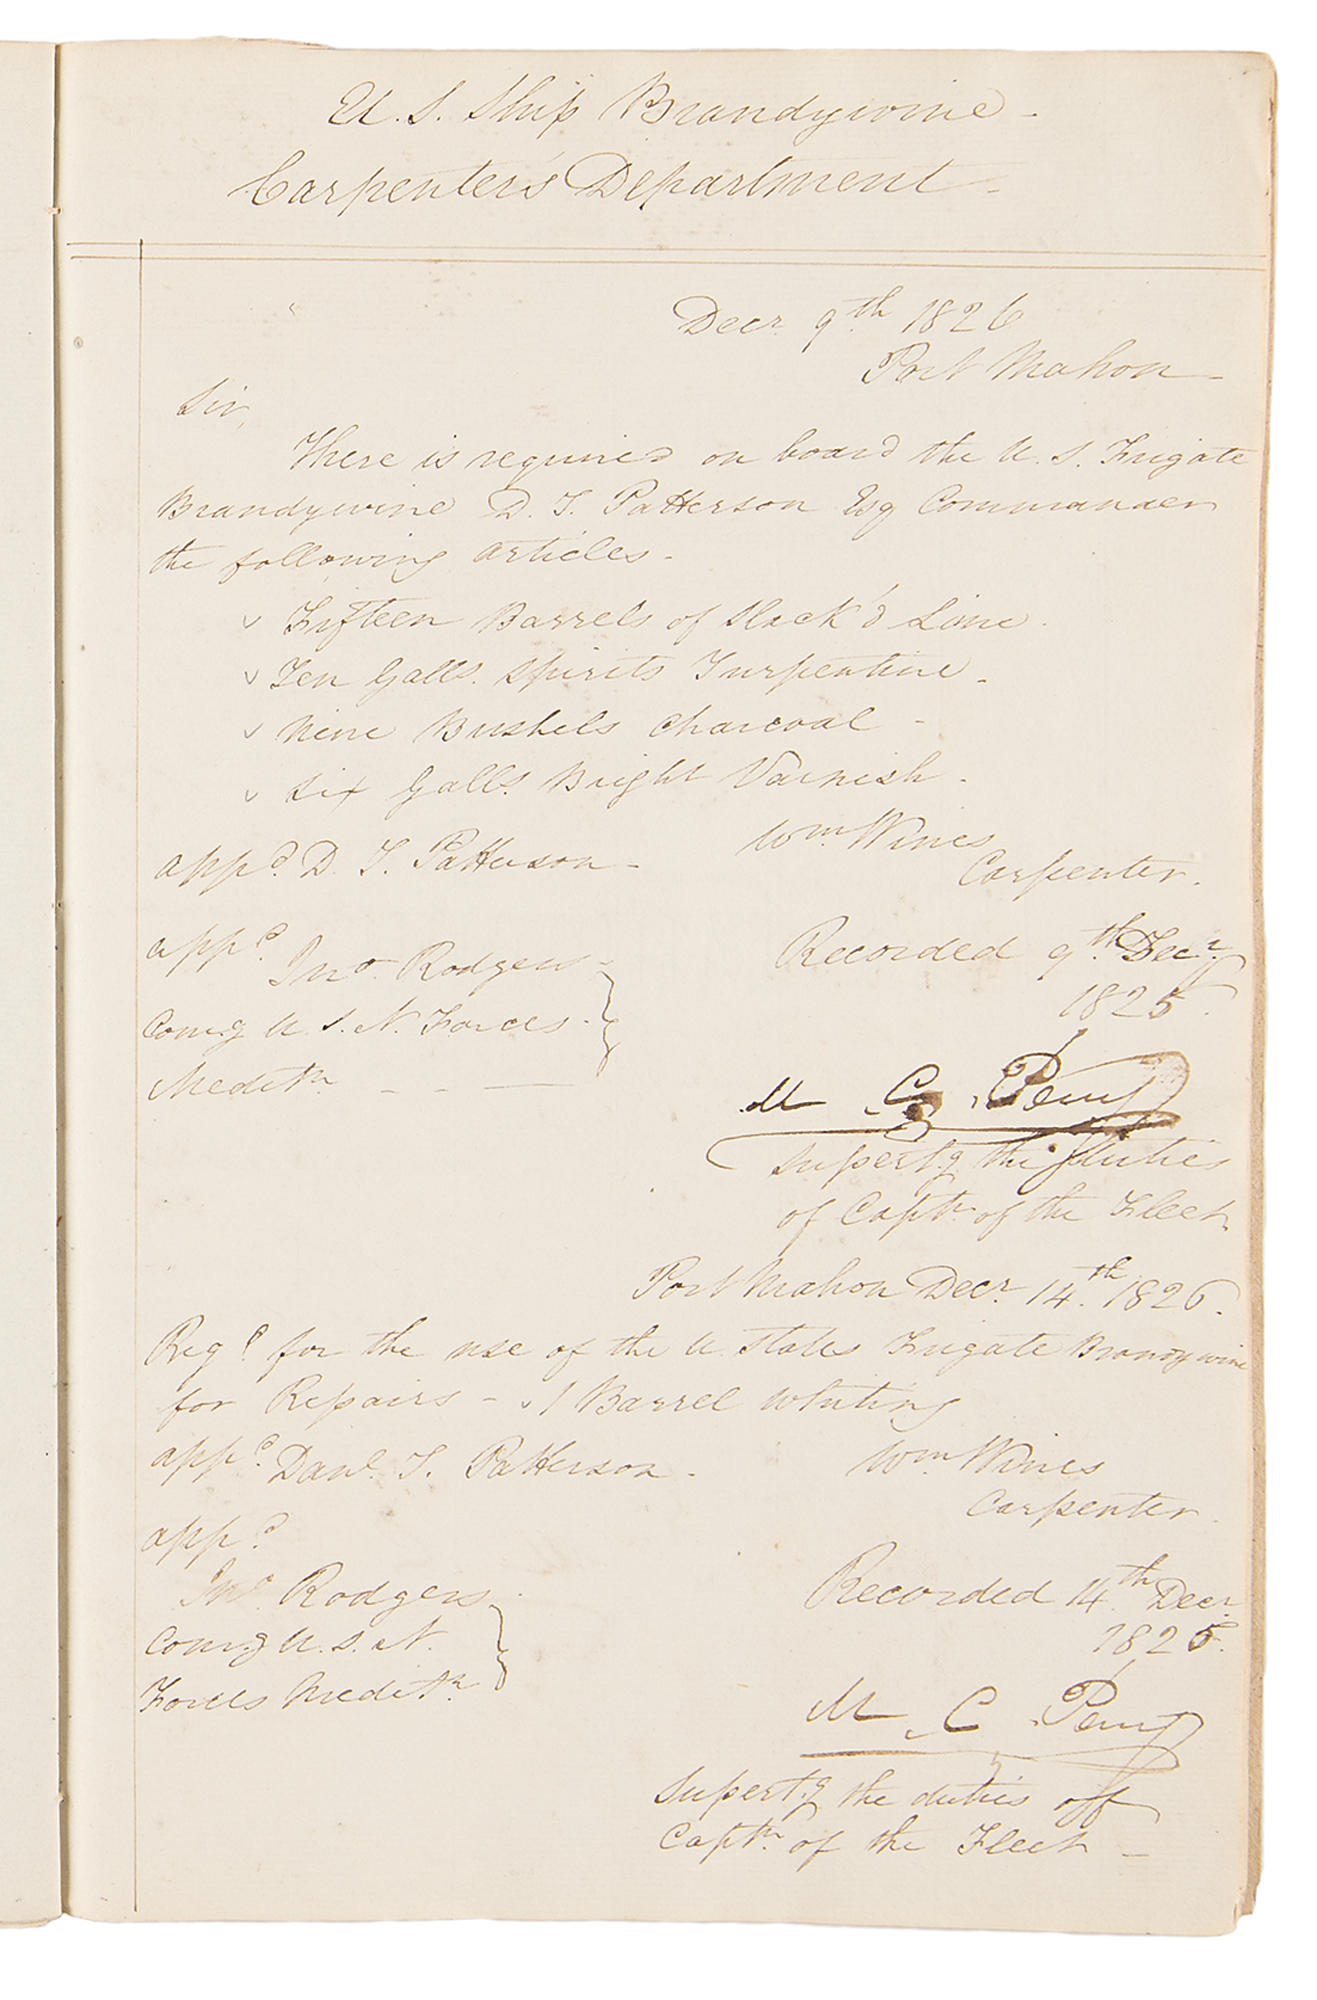 U. S. Ship Brandywine -
Carpenter's Department -
Decr 9th 1826
Port Mahon -
Sir,
There is required on board the U. S. Frigate
Brandywine D. T. Patterson Esq Commander
the following articles -
✓ Fifteen Barrels of Slack'd Lime.
✓ Ten Galls. Spirits Turpentine -
✓ Nine Bushels Charcoal -
✓ Six Galls. Bright Varnish -
Wm. Wines
Carpenter.
appd. D. T. Patterson -
appd. Jno. Rodgers
Comg U. S. N. Forces.
Meditn - - —
Recorded 9th. Decr.
1825.
M C Perry
Supert.g the duties
of Captn. of the Fleet
Port Mahon Decr. 14th. 1826.
Reqd for the use of the U. States Frigate Brandywine
for Repairs - ✓ 1 Barrel Whiting
appd. Danl. T. Patterson -
Wm. Wines
Carpenter.
appd.
Jno. Rodgers
Comg U. S. N.
Forces Meditn.
Recorded 14th. Decr
1825.
M C Perry
Supert.g the duties off
Captn. of the Fleet -